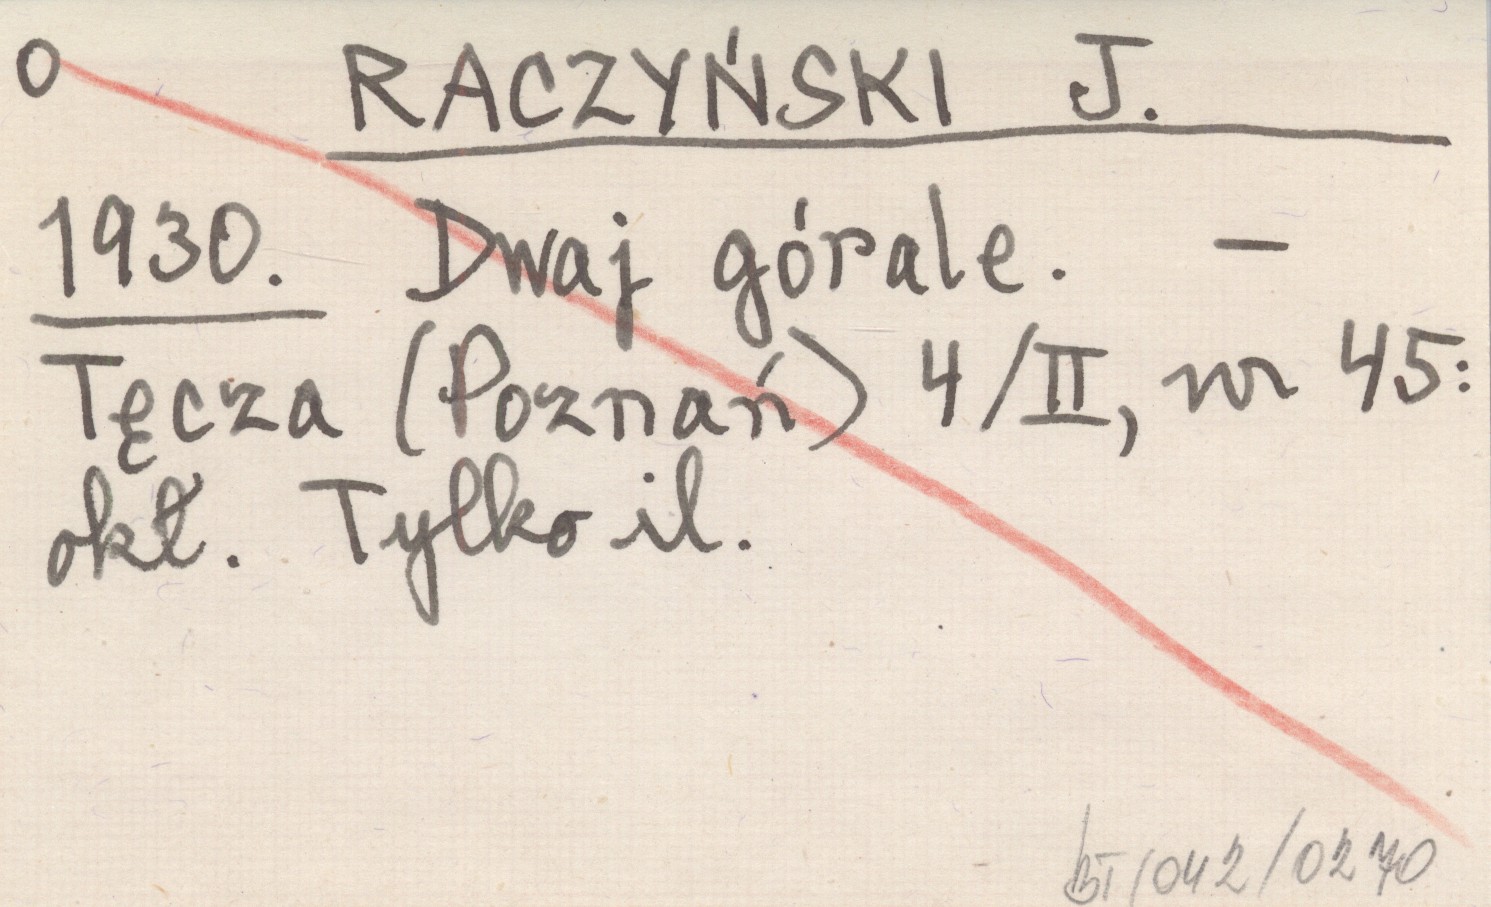 O RACZYŃSKI J.
1930. Dwaj górale. —
Tęcza (Poznań) 4/II, nr 45:
okł. Tylko il.
BT/042/0270